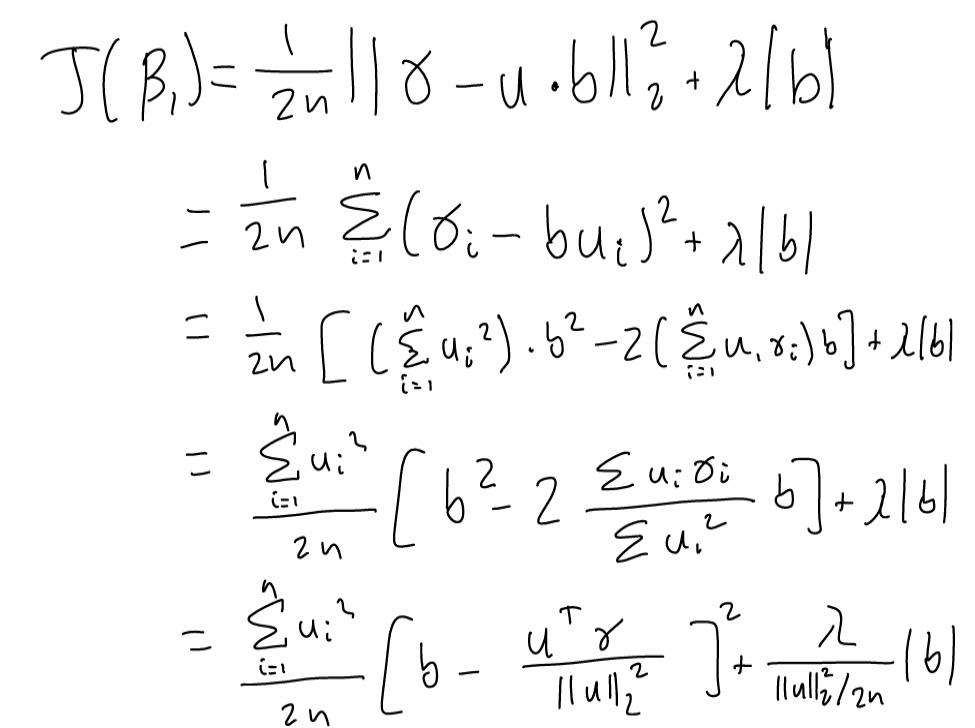 J(β₁) = 1/2n ||r − u·b||₂² + λ|b|
= 1/2n Σᵢ₌₁ⁿ (rᵢ − buᵢ)² + λ|b|
= 1/2n [(Σᵢ₌₁ⁿ uᵢ²)·b² − 2(Σᵢ₌₁ⁿ uᵢrᵢ)b] + λ|b|
= Σᵢ₌₁ⁿ uᵢ² / 2n [b² − 2 (Σuᵢrᵢ / Σuᵢ²) b] + λ|b|
= Σᵢ₌₁ⁿ uᵢ² / 2n [b − uᵀr / ||u||₂²]² + λ / (||u||₂²/2n) |b|